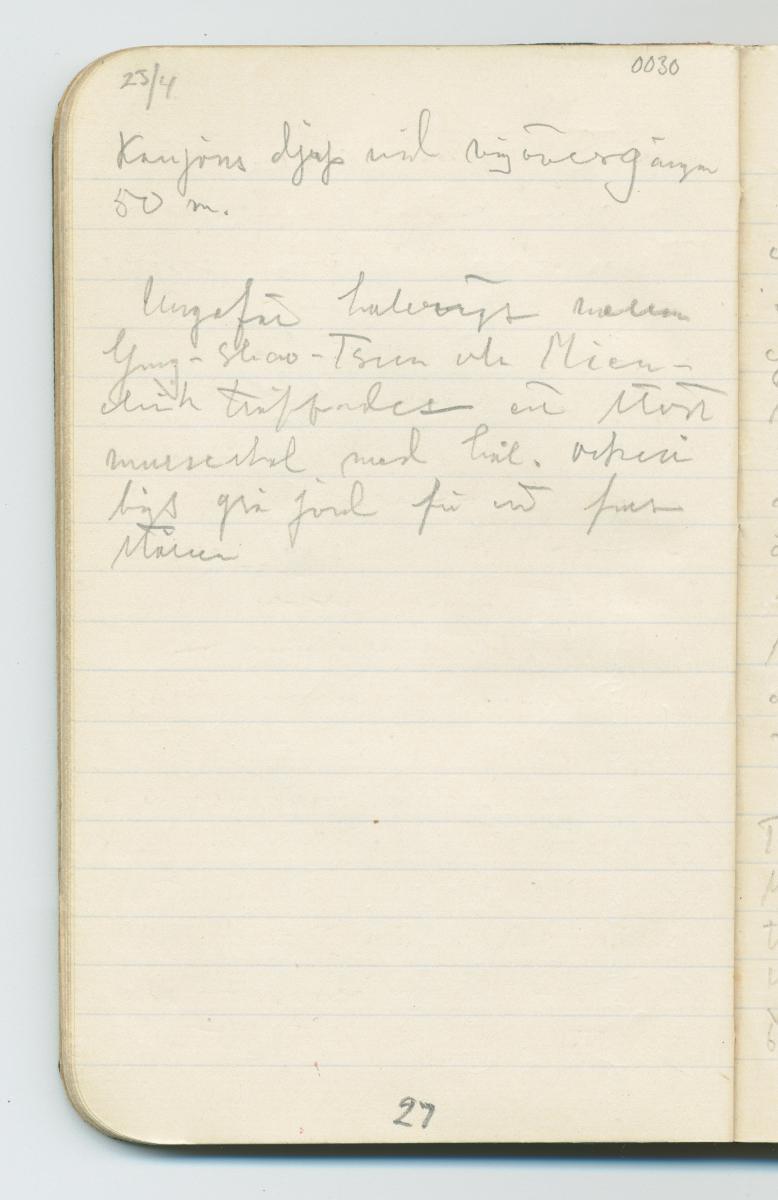 25/4
0030
Kanjons djup vid vägövergången
50 m.
Ungefär halvvägs mellan
Yang-Shao-Tsun och Mien-
chih träffades ett stort
musselskal med hål. också
lags grå jord
stället
27